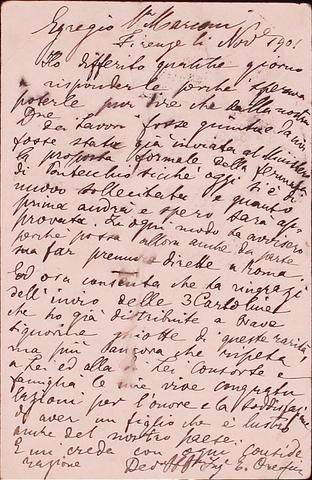 Egregio Sr Marconi
Firenze li Nove 1901
Ho differito qualche giorno
a risponderle perchè speravo
poterle pur dire che dalla nostra
Dne dei Lavori fosse giunta a
fosse stata già inviata al Ministero
la proposta formale della fermata
di Pontecchio sicchè oggi si è di
nuovo sollecitata e quanto
prima andrà e spero sarà ap-
provata. In ogni modo La avviserò
perchè possa allora anche da parte
sua far premure dirette a Roma.
Ed ora consenta che La ringrazi
dell'invio delle 3 Cartoline
che ho già distribuite a brave
signorine ghiotte di queste rarità,
ma più ancora che ripeta
a Lei ed alla di Lei Consorte e
famiglia le mie vive congratu
lazioni per l'onore e la soddisfazione
di aver un figlio che è lustro
anche del nostro paese.
E mi creda con ogni conside
razione